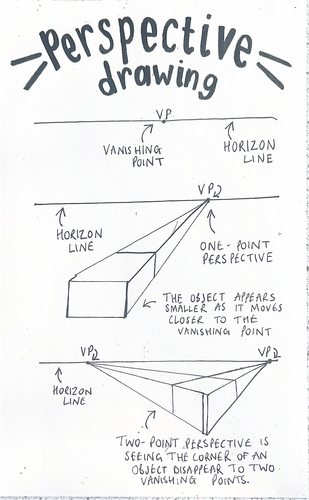 Perspective
drawing
VP
VANISHING
POINT
HORIZON
LINE
VP
HORIZON
LINE
ONE-POINT
PERSPECTIVE
THE OBJECT APPEARS
SMALLER AS IT MOVES
CLOSER TO THE
VANISHING POINT
VP
VP
HORIZON
LINE
TWO-POINT PERSPECTIVE IS
SEEING THE CORNER OF AN
OBJECT DISAPPEAR TO TWO
VANISHING POINTS.